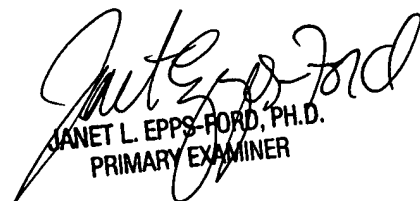 Janet Epps-Ford
JANET L. EPPS-FORD, PH.D.
PRIMARY EXAMINER